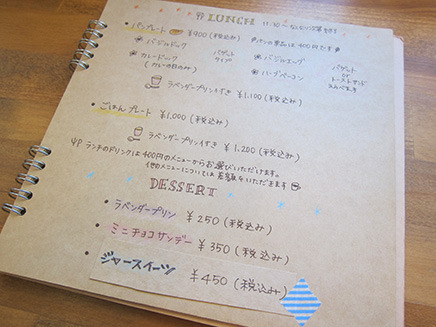 LUNCH 11:30～なくなり次第終了
• パンプレート ¥900(税込み) パンの単品は400円です
バジルドッグ バゲットタイプ
バジルエッグ バゲット or トーストサンド えらべます
カレードッグ (カレーの日のみ)
ハニーベーコン
ラベンダープリン付き ¥1,100(税込み)
• ごはんプレート ¥1,000(税込み)
ラベンダープリン付き ¥1,200(税込み)
ランチのドリンクは400円のメニューからお選びいただけます。
他のメニューについては差額をいただきます
DESSERT
• ラベンダープリン ¥250(税込み)
• ミニチョコサンデー ¥350(税込み)
• ジャースイーツ ¥450(税込み)